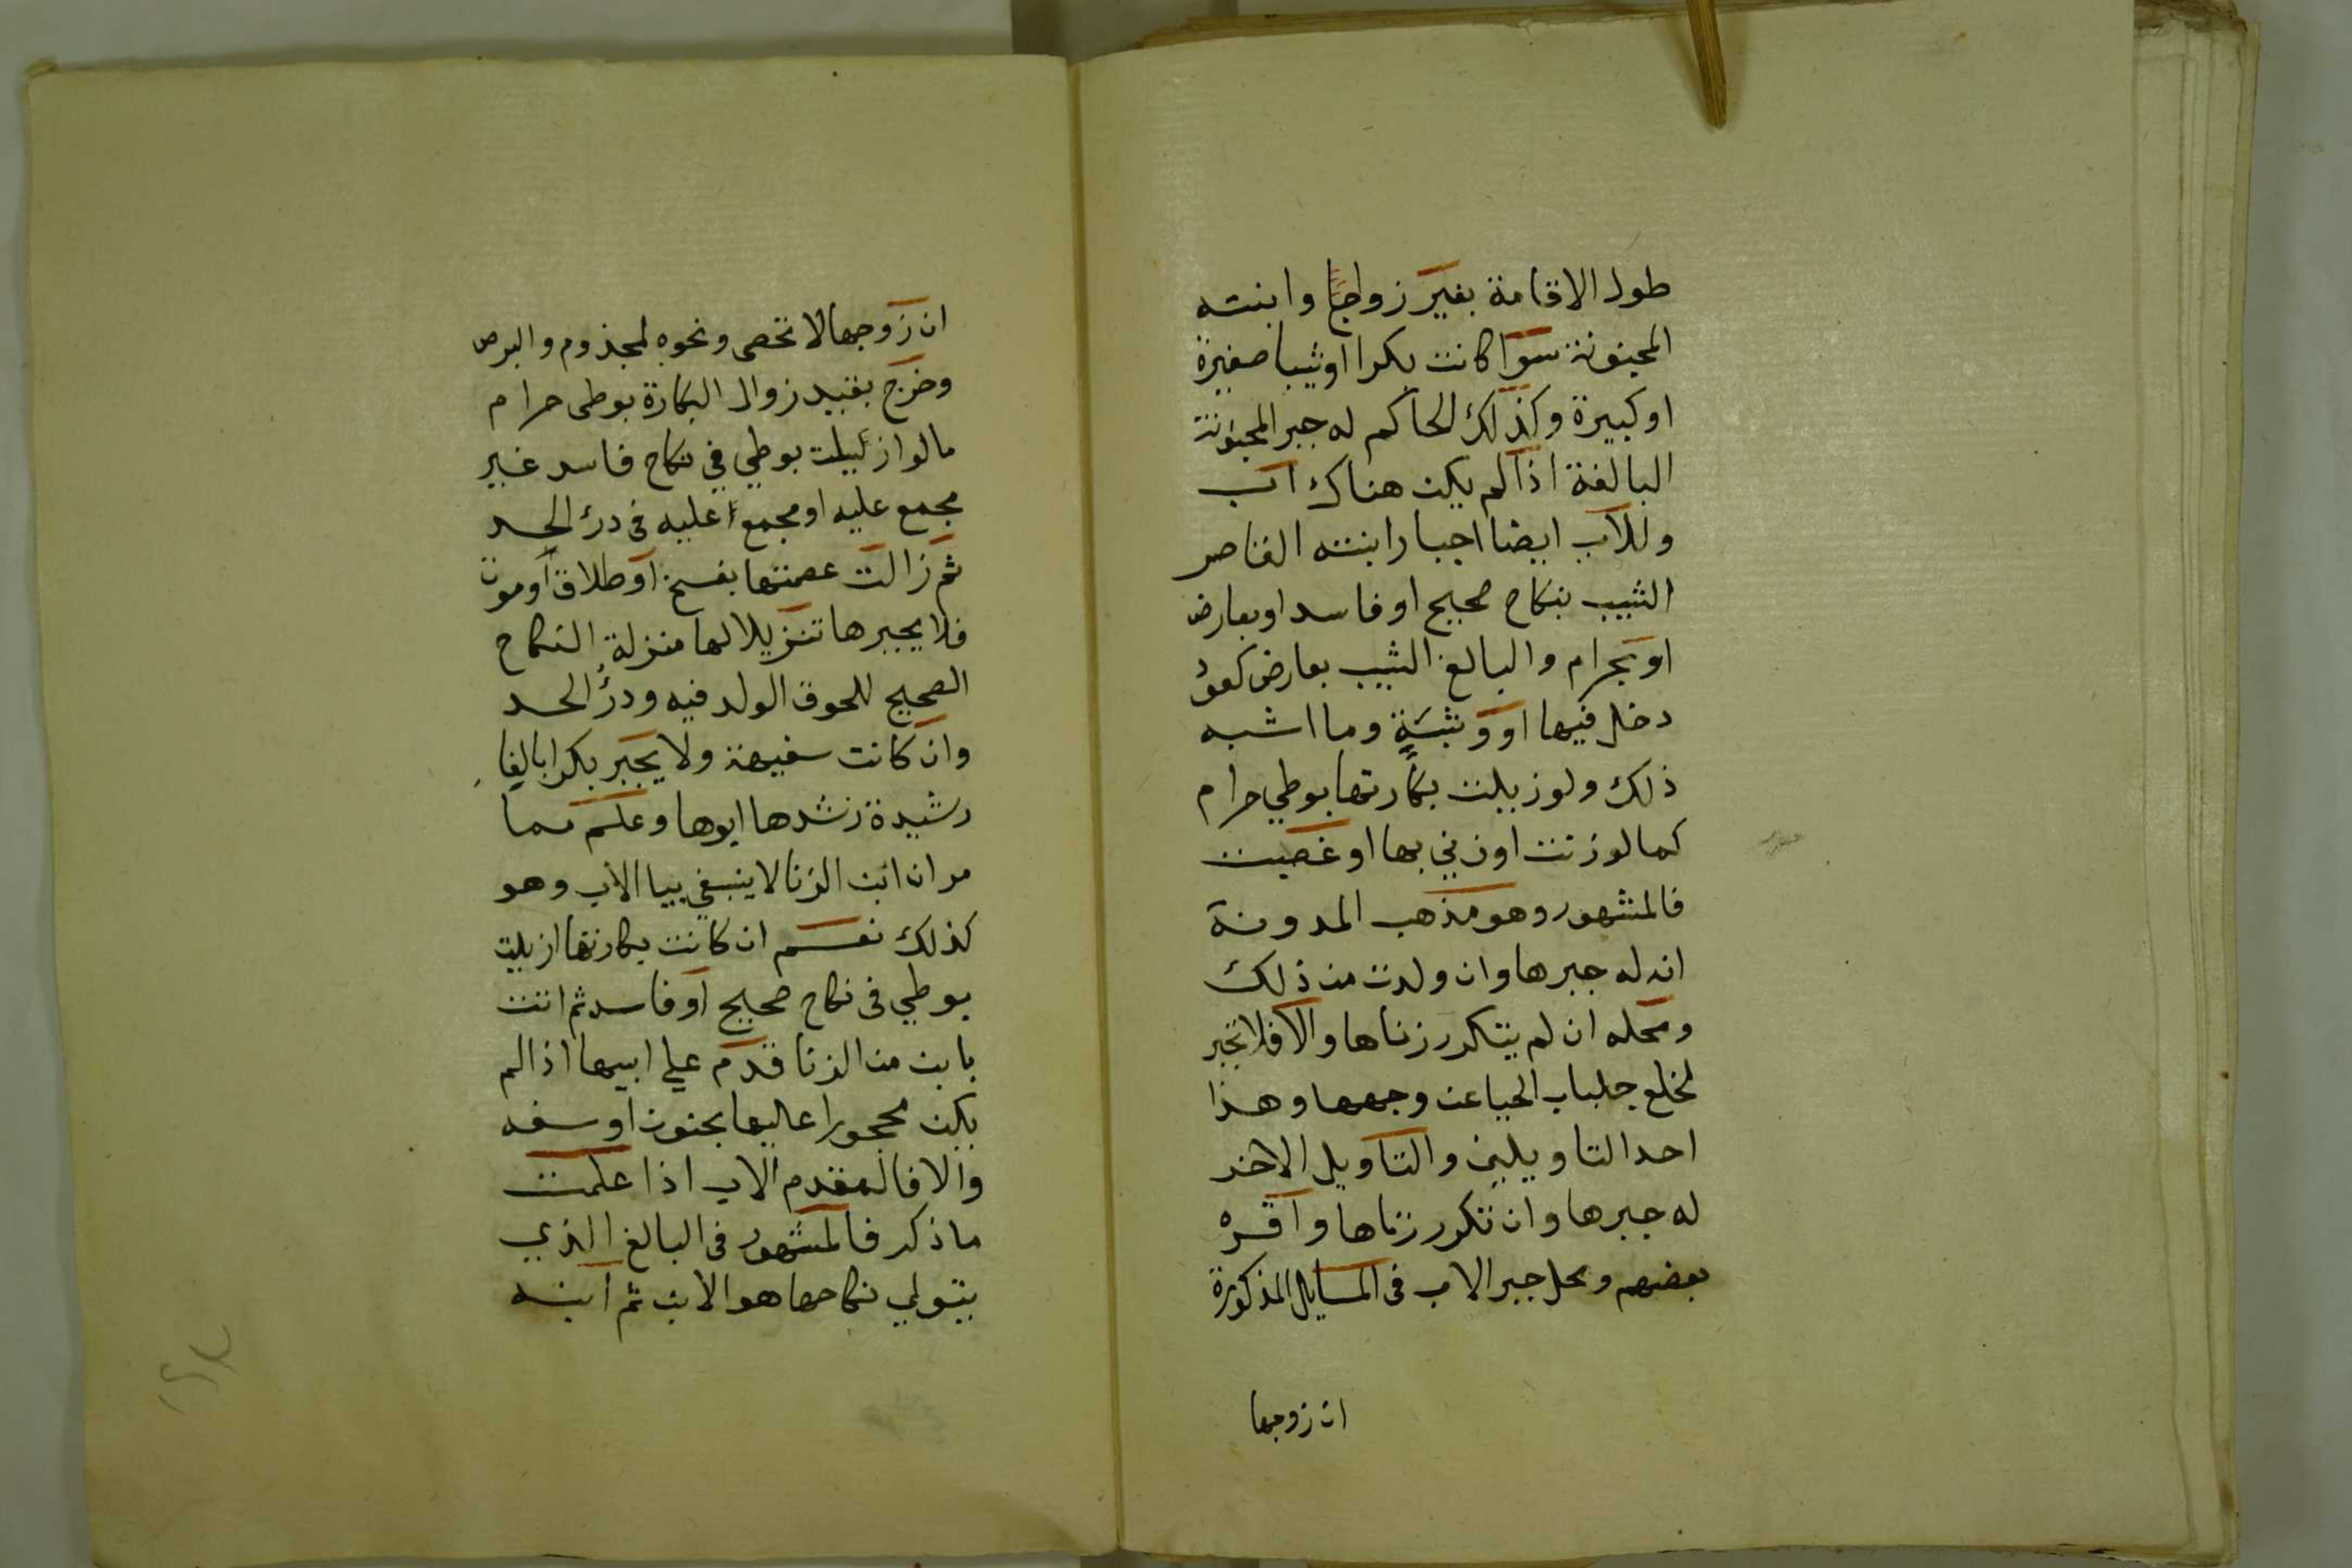 طول الاقامة بغير زواجا وابنته
المجنونة سوا كانت بكرا اوثيبا صغيرة
او كبيرة وكذلك الحاكم له جبر المجنونة
البالغة اذا لم يكن هناك اب
وللاب ايضا اجبار ابنته القاصر
الثيب بنكاح صحيح او فاسد او بعارض
او بحرام والبالغ الثيب بعارض كعود
دخل فيها او وثبة وما اشبه
ذلك ولو زيلت بكارتها بوطي حرام
كما لو زنت او زني بها او غصبت
فالمشهور وهو مذهب المدونة
انه له جبرها وان ولدت من ذلك
ومحله ان لم يتكرر زناها والا فلا تجبر
لخلع جلباب الحيا عن وجهها وهذا
احد التاويلين والتاويل الاخر
له جبرها وان تكرر زناها واقره
بعضهم ومحل جبر الاب في المسايل المذكورة
ان زوجها
ان زوجها لا تخصى ونحوه لمجذوم والبرص
وخرج بقييد زوال البكارة بوطى حرام
مالو ازيلت بوطي في نكاح فاسد غير
مجمع عليه او مجمعا عليه فى درء الحد
ثم زالت عصمتها بفسخ او طلاق او موت
فلا يجبرها تنزيلا لها منزلة النكاح
الصحيح للحوق الولد فيه ودرء الحد
وان كانت سفيهة ولا يجبر بكرا بالغا
رشيدة رشدها ابوها وعلم مما
مر ان ابن الزنا لا ينبغي بيا الاب وهو
كذلك نعم ان كانت بكارتها ازيلت
بوطي فى نكاح صحيح او فاسد ثم اتت
بابن من الزنا قدم علي ابيها اذا لم
يكن محجورا عاليها بجنون او سفه
والا فالمقدم الاب اذا علمت
ما ذكر فالمشهور فى البالغ الذي
يتولي نكاحها هو الابن ثم ابنه